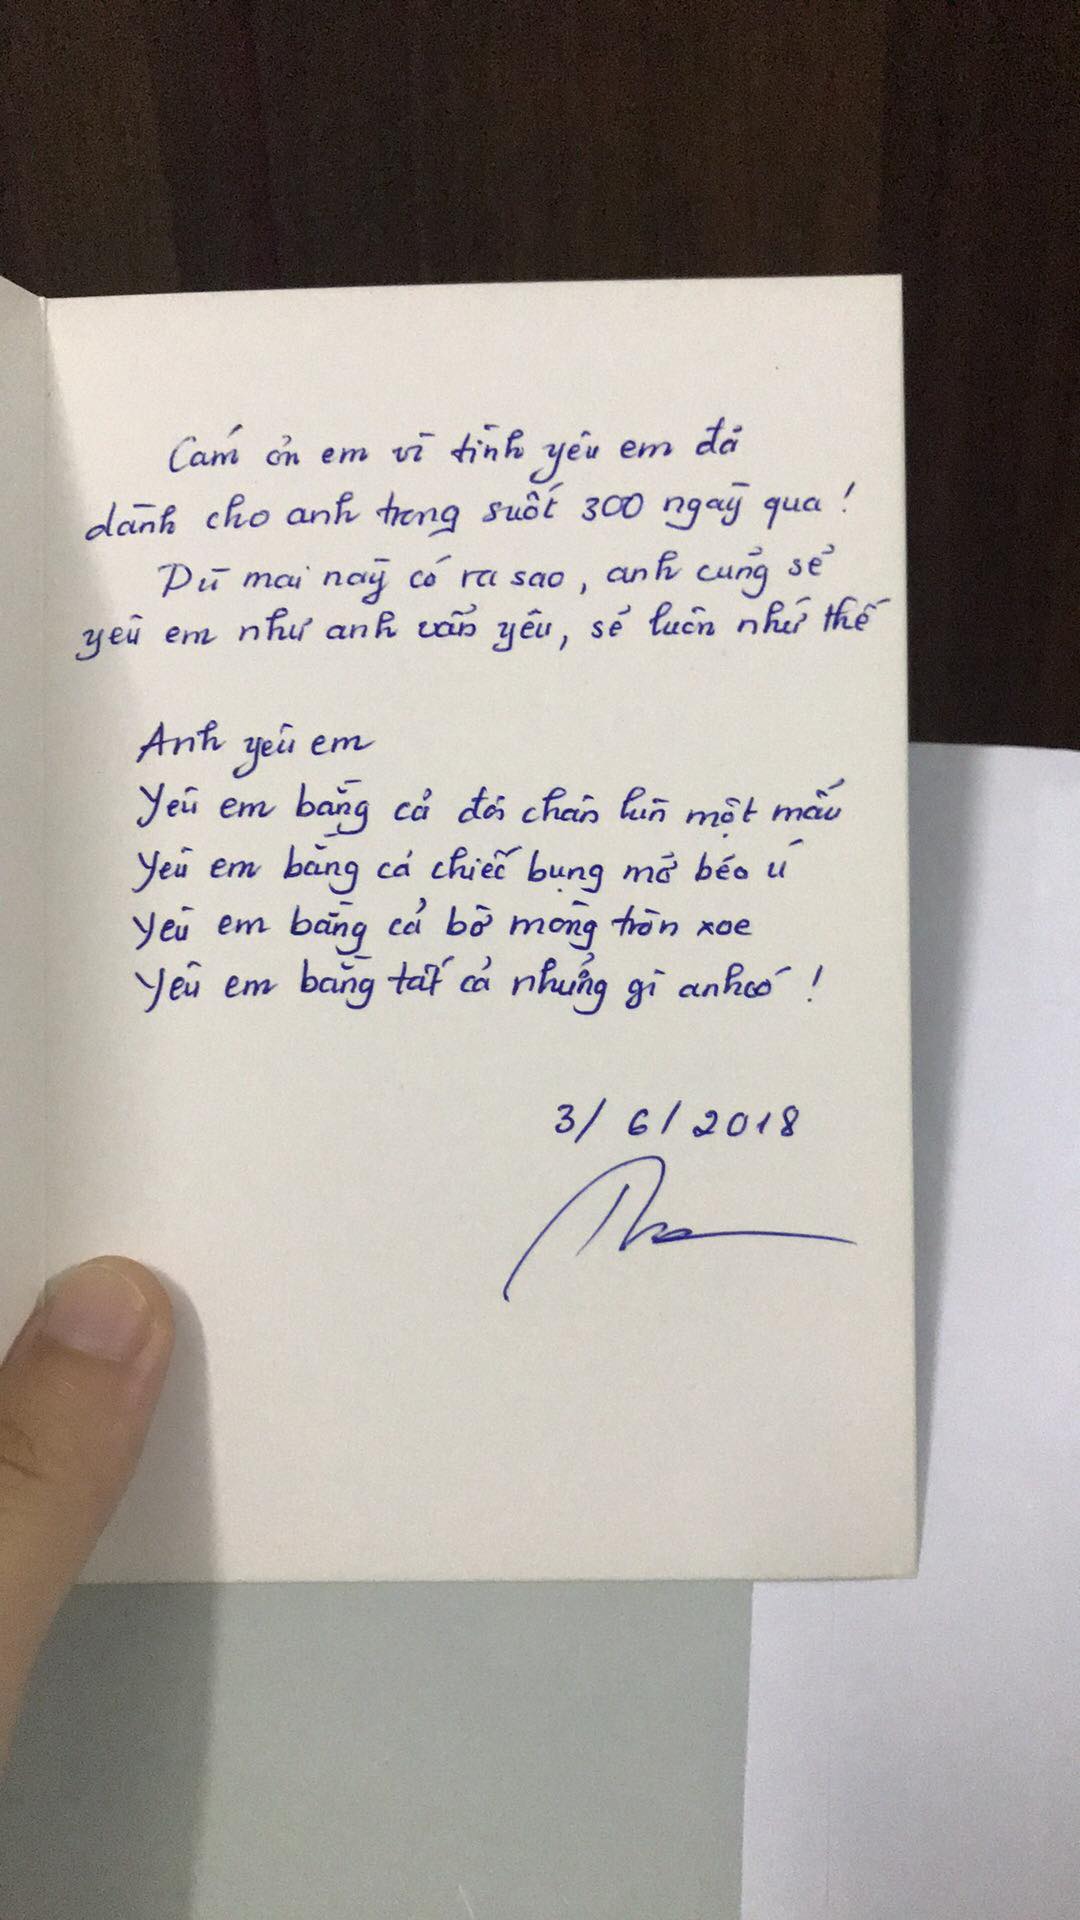 Cám ơn em vì tình yêu em đã
dành cho anh trong suốt 300 ngày qua !
Dù mai này có ra sao, anh cũng sẽ
yêu em như anh vẫn yêu, sẽ luôn như thế
Anh yêu em
Yêu em bằng cả đôi chân lùn một mẩu
Yêu em bằng cả chiếc bụng mỡ béo ú
Yêu em bằng cả bờ mông tròn xoe
Yêu em bằng tất cả những gì anh có !
3/6/2018